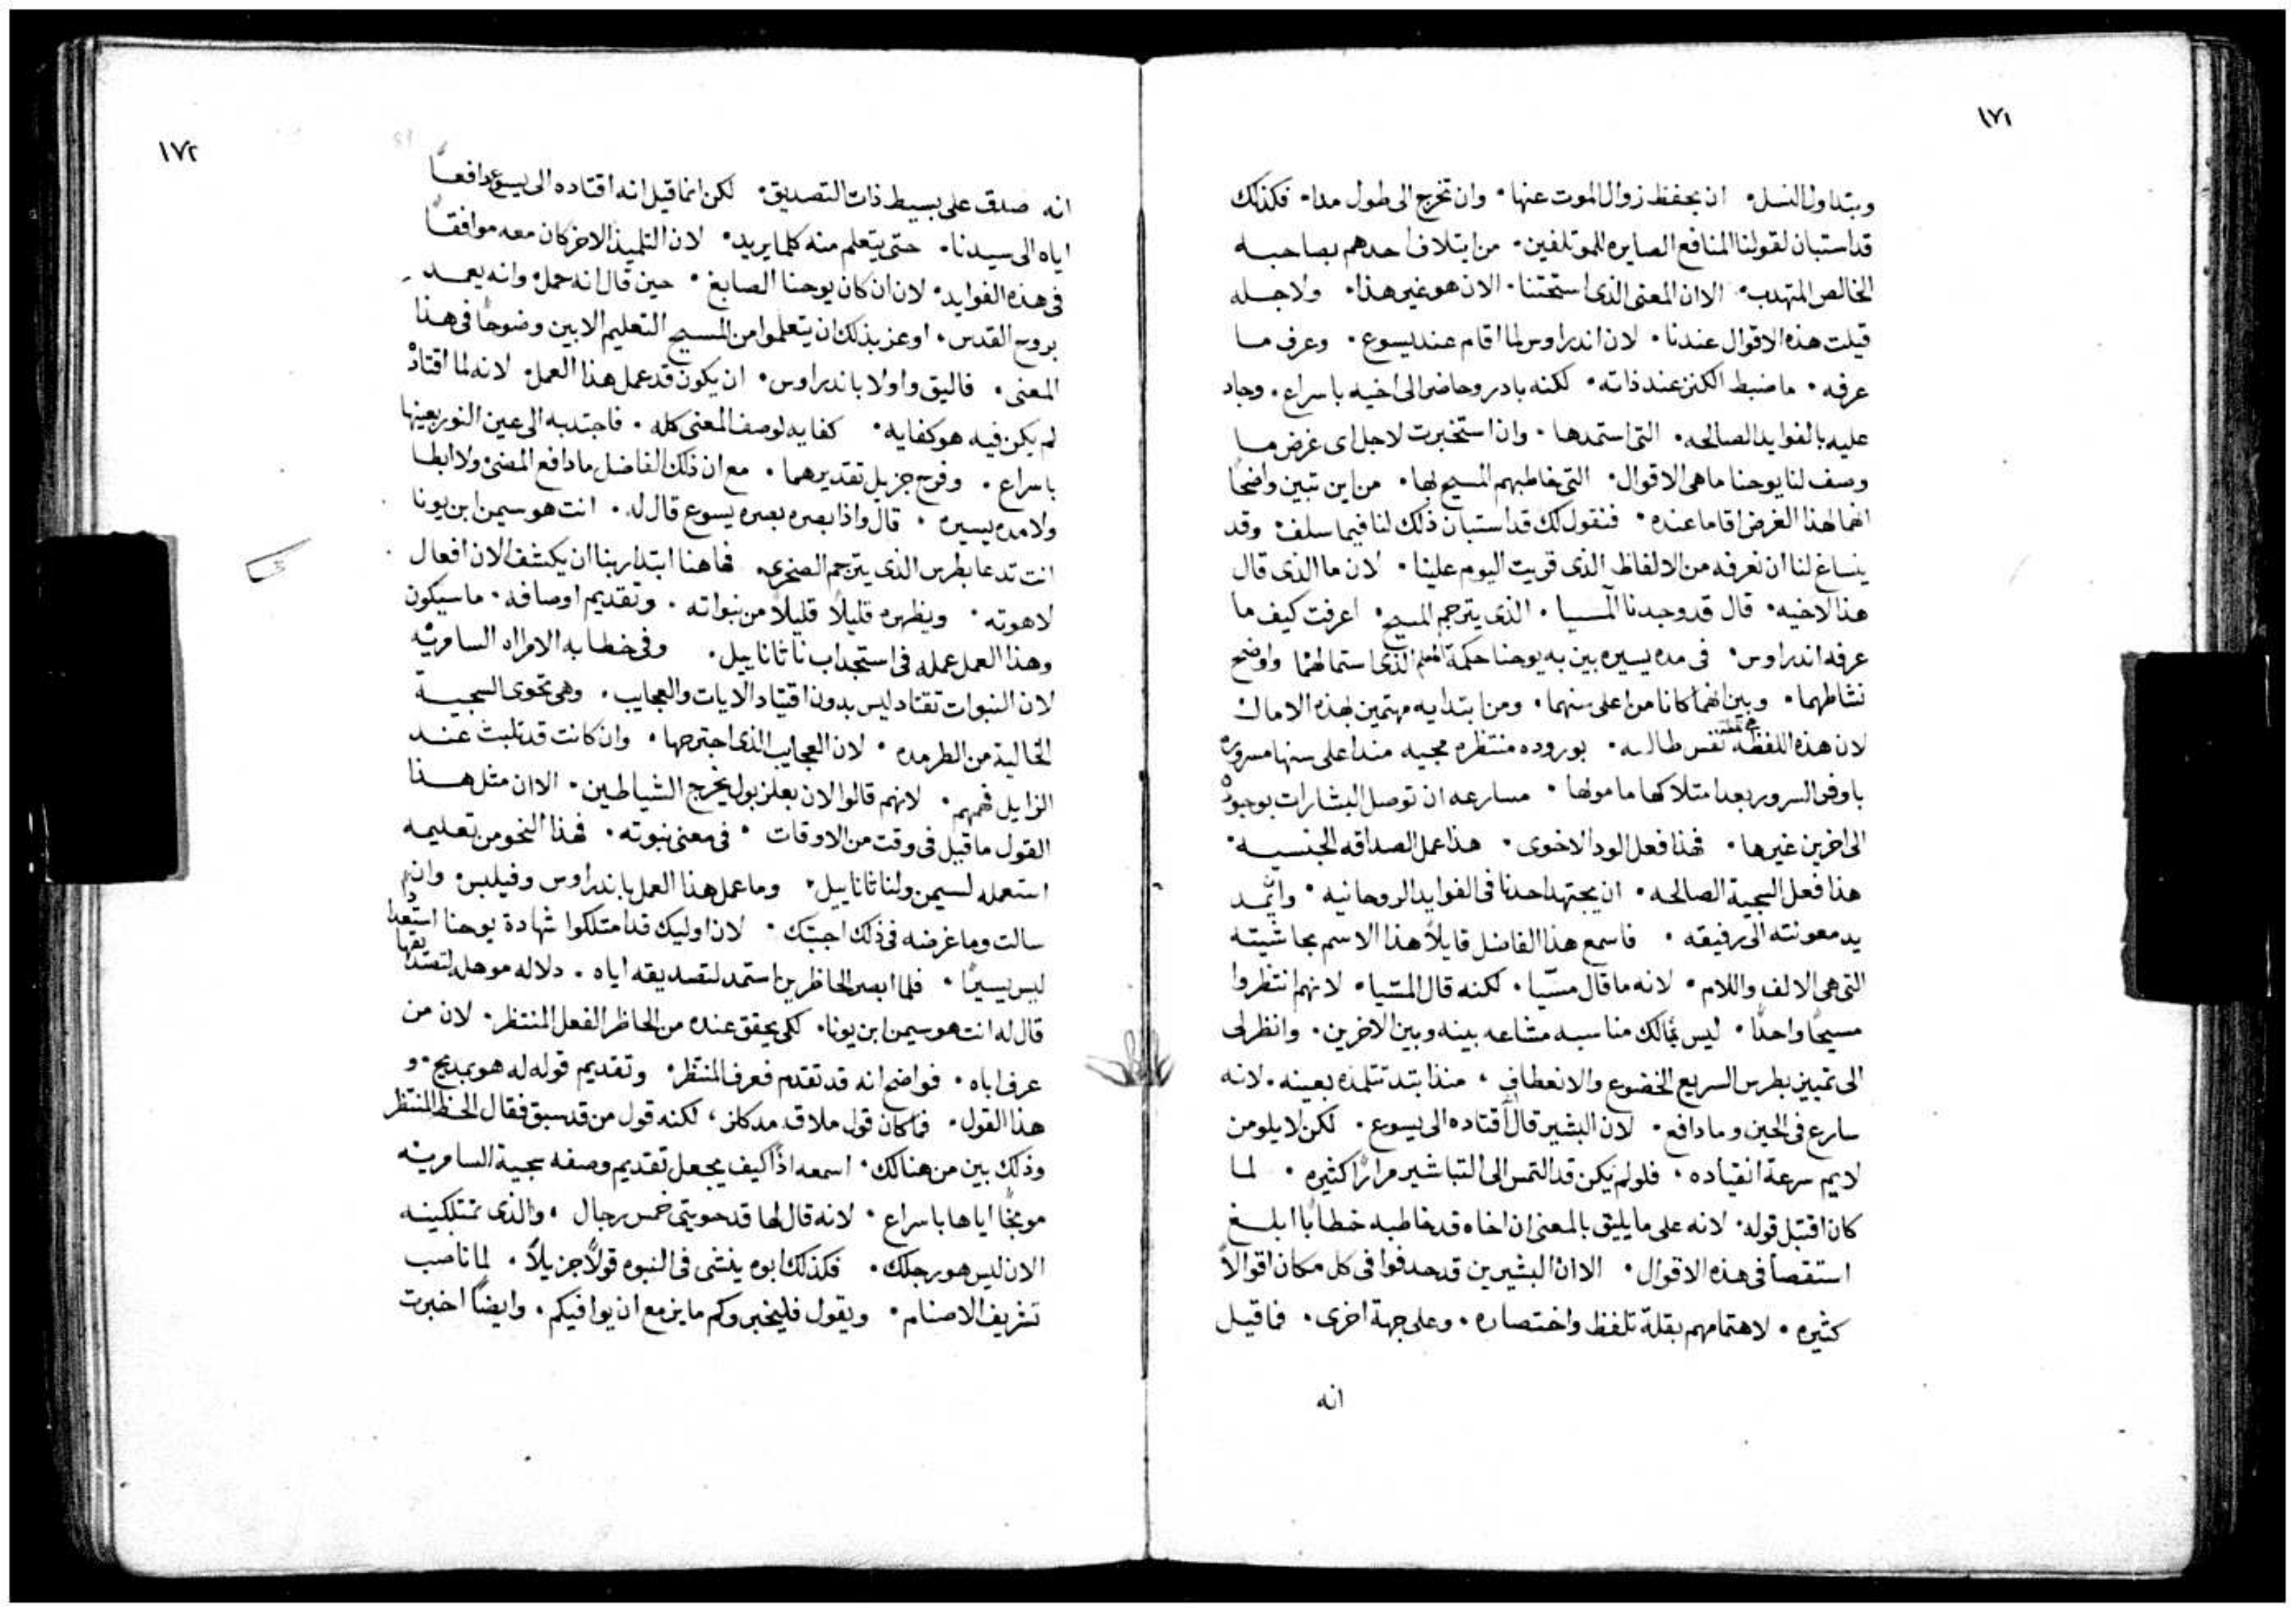 ١٧١
وبتداول النسل٠ ان يحفظ زوال الموت عنها٠ وان تخرج الى طول مدا٠ فكذلك
قد استبان لقولنا المنافع الصايره للموتلفين٠ من ايتلاف احدهم بصاحبه
الخالص المتهدب٠ الا ان المعنى الذى استحتنا٠ الان هو غير هذا٠ ولاجله
قيلت هذه الاقوال عندنا٠ لان اندراوس لما اقام عند يسوع٠ وعرف ما
عرفه٠ ما ضبط الكنز عند ذاته٠ لكنه بادر وحاضر الى اخيه باسراع٠ وجاد
عليه بالفوايد الصالحه٠ التى استمدها٠ وان استخبرت لاجل اى غرض ما
وصف لنا يوحنا ما هى الاقوال٠ التى خاطبهم المسيح بها٠ من اين تبين واضحًا
انهما لهذا الغرض اقاما عنده٠ فنقول لك قد استبان ذلك لنا فيما سلف٠ وقد
ينساغ لنا ان نعرفه من الالفاظ الذى قريت اليوم علينا٠ لان ما الذى قال
هذا لاخيه٠ قال قد وجدنا المسيا٠ الذى يترجم المسيح٠ اعرفت كيف ما
عرفه اندراوس٠ فى مده يسيره بين به يوحنا حكمة المعلم الذى استمالهما واوضح
نشاطهما٠ وبين انهما كانا من اعلى سنهما٠ ومن ابتدايه مهتمين بهذه الامال
لان هذه اللفظه هى لفظة نفس طالبه٠ بوروده منتظره مجيه منذ اعلى سنها مسروره
باوفى السرور بعد امتلاكها مامولها٠ مسارعه ان توصل البشارات بوجوده
الى اخرين غيرها٠ فهذا فعل الود الاخوى٠ هذا عمل الصداقه الجنسيه٠
هذا فعل السجية الصالحه٠ ان يجتهد احدنا فى الفوايد الروحانيه٠ وايمد
يد معونته الى رفيقه٠ فاسمع هذا الفاضل قايلاً هذا الاسم بحاشيته
التى هى الالف واللام٠ لانه ما قال مسّيا٠ لكنه قال المسّيا٠ لانهم انتظروا
مسيحًا واحدًا٠ ليس يمالك مناسبه مشاعه بينه وبين الاخرين٠ وانظر لى
الى تمييز بطرس السريع الخضوع والانعطاف٠ منذ ابتد تتلمذه بعينه٠ لانه
سارع فى الحين وما دافع٠ لان البشير قال اقتاده الى يسوع٠ لكن لا يلومن
لايم سرعة انقياده٠ فلو لم يكن قد التمس الى التباشير مرارًا كثيره٠ لما
كان اقتبل قوله٠ لانه على ما يليق بالمعنى ان اخاه قد خاطبه خطابًا ابلغ
استقصأ فى هذه الاقوال٠ الا ان البشيرين قد حدفوا فى كل مكان اقوالاً
كثيره٠ لاهتمامهم بقلة تلفظ واختصاره٠ وعلى جهة اخرى٠ فما قيل
انه
١٧٢
انه صدق على بسيط ذات التصديق٠ لكن انما قيل انه اقتاده الى يسوع دافعًا
اياه الى سيدنا٠ حتى يتعلم منه كلما يريد٠ لان التلميذ الاخر كان معه موافقًا
فى هذه الفوايد٠ لان ان كان يوحنا الصابغ٠ حين قال انه حمل٠ وانه يعمد
بروح القدس٠ اوعز بذلك ان يتعلموا من المسيح التعليم الابين وضوحًا فى هذا
المعنى٠ فاليق واولا باندراوس٠ ان يكون قد عمل هذا العمل٠ لانه لما اقتاده
لم يكن فيه هو كفايه٠ كفايه لوصف المعنى كله٠ فاجتدبه الى عين النور بعينها
باسراع٠ وفرح جزيل تقديرهما٠ مع ان ذلك الفاضل ما دافع المضىْ ولا ابطا
ولا مده يسيره٠ قال واذا بصره بصره يسوع قال له٠ انت هو سيمن ابن يونا
انت تدعا بطرس الذى يترجم الصخره٠ فهاهنا ابتدا ربنا ان يكشف الان افعال
لاهوته٠ ويظهره قليلاً قليلاً من نبواته٠ وتقديم اوصافه٠ ما سيكون
وهذا العمل عمله فى استجداب ناثاناييل٠ وفى خطابه الامراه السامريه
لان النبوات تقتاد ليس بدون اقتياد الايات والعجايب٠ وهى تحوى السجية
الخالية من الطرمده٠ لان العجايب الذى اجترحها٠ وان كانت قد تلبث عند
الزايل فهمهم٠ لانهم قالوا الان بعلزبول يخرج الشياطين٠ الا ان مثل هذا
القول ما قيل فى وقت من الاوقات٠ فى معنى نبوته٠ فهذا النحو من تعليمه
استعمله لسيمن ولناثاناييل٠ وما عمل هذا العمل باندراوس وفيلبس٠ وان
سالت وما غرضه فى ذلك اجبتك٠ لان اوليك قد امتلكوا شهادة يوحنا استعدادًا
ليس يسيرًا٠ فلما ابصر الحاظرين استمد لتصديقه اياه٠ دلاله موهله لتصديقها
قال له انت هو سيمن ابن يونا٠ لكى يحقق عنده من الحاظر الفعل المنتظر٠ لان من
عرف اباه٠ فواضح انه قد تقدم فعرف المنتظر٠ وتقديم قوله له هو بمديح٠ و
هذا القول٠ فما كان قول ملاق مدكلز، لكنه قول من قد سبق فقال الحظ المنتظر
وذلك بين من هنالك٠ اسمعه اذًا كيف يجعل تقديم وصفه سجية السامريه
موبخًا اياها باسراع٠ لانه قال لها قد حويتى خمس رجال٠ والذى تمتلكينه
الان ليس هو رجلك٠ فكذلك ابوه ينشى فى النبوه قولاً جزيلاً٠ لما ناصب
تشريف الاصنام٠ ويقول فليخبروكم ما يزمع ان يوافيكم٠ وايضًا اخبرت